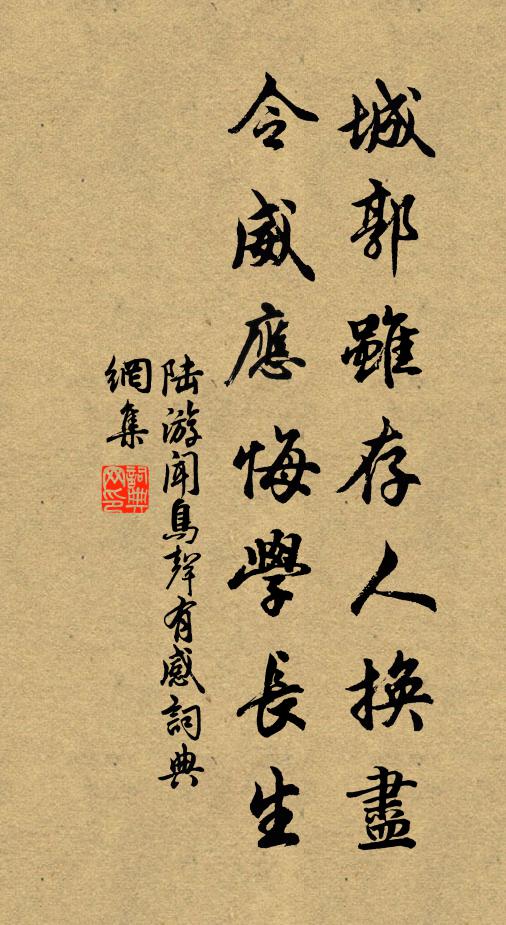 城郭雖存人換盡
令威應悔學長生
陆游闻鳥聲有感詞典
網集
詞典
網印